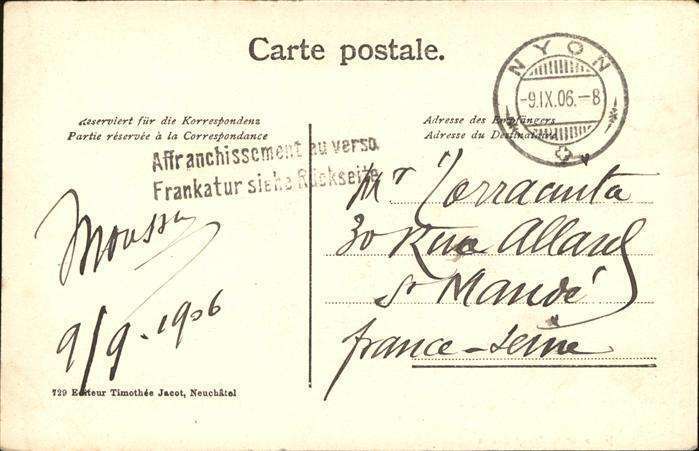 Carte postale.
NYON
-9.IX.06.-8
Reserviert für die Korrespondenz
Partie réservée à la Correspondance
Adresse des Empfängers
Adresse du Destinataire
Affranchissement au verso
Frankatur siehe Rückseite
Mr
30 Rue Allard
St Mandé
france-seine
9/9-1906
729 Editeur Timothée Jacot, Neuchâtel